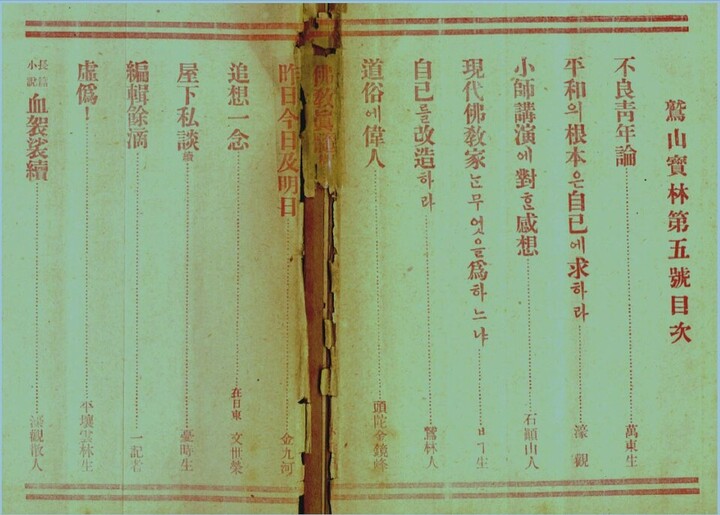 鷲山寶林第五號目次
不良靑年論 萬東生
平和의根本은自己에求하라 濠觀
小師講演에對ᄒᆞᆫ感想 石顚山人
現代佛敎家ᄂᆞᆫ무엇을爲하ᄂᆞ냐 ㅂㄱ生
自己를改造하라 鷲林人
道俗에偉人 頭陀金鏡峰
佛敎
昨日今日及明日 金九河
追想一念 在日東 文世榮
屋下私談 續
編輯餘滴 一記者
虛僞! 平壤雲林生
長篇小說 血袈裟續 觀散人